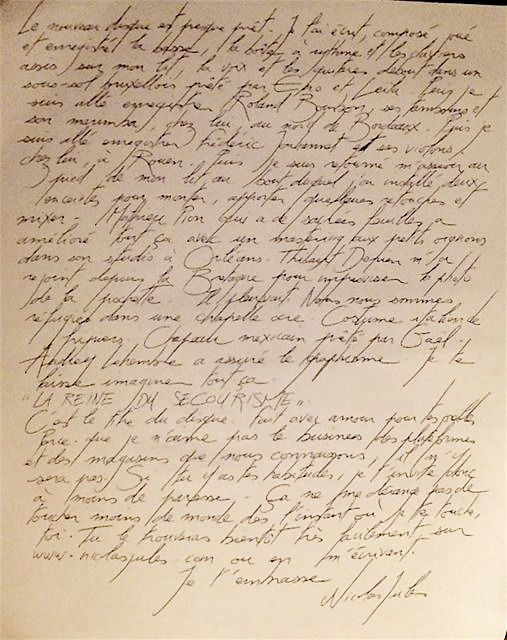 Le nouveau disque est presque prêt. Je l'ai écrit, composé, joué
et enregistré la basse, la boîte à rythme et les claviers
assis sur mon lit, la voix et les guitares debout dans un
sous-sol bruxellois prêté par et Leila. Puis je
suis allé enregistrer Roland Bourbon, ses tambours et
son marimba, chez lui, au nord de Bordeaux. Puis je
suis allé enregistrer Frédéric et ses violons
chez lui, à Rouen. Puis je suis retourné m'asseoir au
pied de mon lit au bout duquel j'ai installé deux
enceintes pour monter, apporter quelques retouches et
mixer. Pion qui a de sacrées feuilles a
amélioré tout ça avec un mastering aux petits oignons
dans son studio à Orléans. Thibaut Derien m'a
rejoint depuis la Bretagne pour improviser la photo
de la pochette. Il pleuvait. Nous nous sommes
réfugiés dans une chapelle Costume italien de
Chapeau mexicain prêté par Gaël.
Audrey a assuré le graphisme. Je te
laisse imaginer tout ça.
"LA REINE DU SECOURISME".
C'est le titre du disque. Fait avec amour pour tes oreilles.
Parce que je n'aime pas le business des plateformes
et des magasins que nous connaissons, il n'y
sera pas. Si tu y as tes habitudes, je t'invite donc
à moins de paresse. Ça ne me dérange pas de
toucher moins de monde dès l'instant où je te touche,
toi. Tu le trouveras bientôt très facilement sur
www.nicolasjules.com ou en m'écrivant.
Je t'embrasse
Nicolas Jules